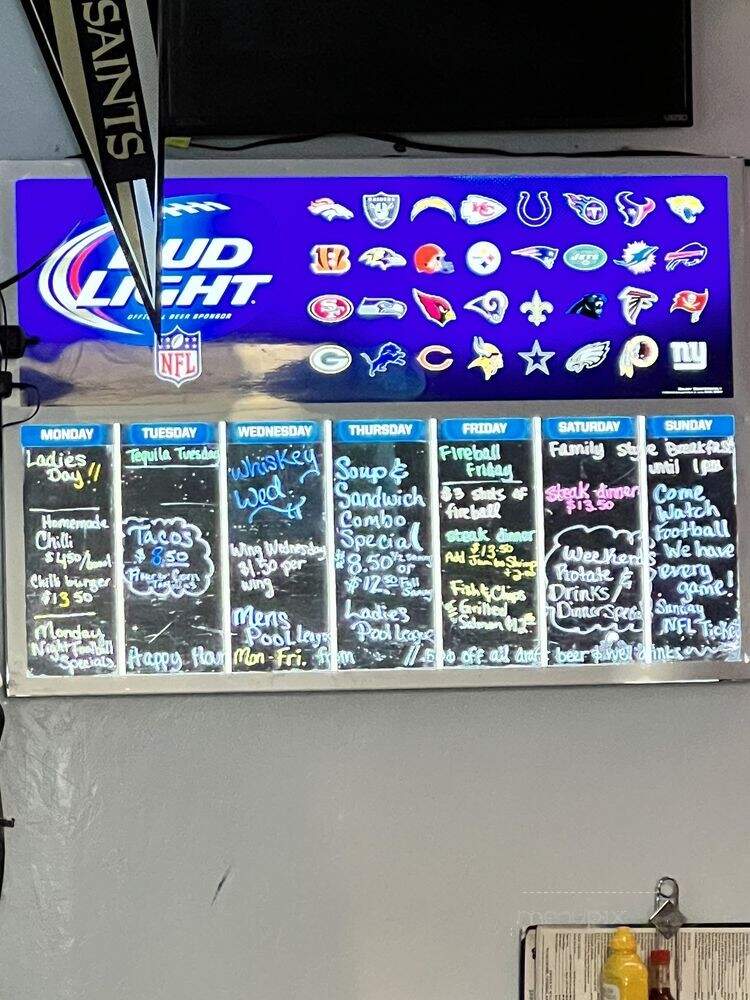 SAINTS
BUD
LIGHT
OFFICIAL BEER SPONSOR
NFL
RAIDERS
JETS
ny
MONDAY
Ladies
Day!!
Homemade
Chilli
$4.50/bowl
Chilli burger
$13.50
Monday
Night Football
Specials
TUESDAY
Tequila Tuesday
Tacos
$8.50
WEDNESDAY
Whiskey
Wed
Wing Wednesday
$1.50 per
wing
Mens
Pool League
THURSDAY
Soup &
Sandwich
Combo
Special
$8.50 1/2
or
$12.50 Full
Ladies
Pool league
FRIDAY
Fireball
Friday
$3 shots of
fireball
Steak dinner
$13.50
Add Jumbo Shrimp
Fish & Chips
& Grilled
Salmon
SATURDAY
Family style Breakfast
until 1pm
Steak dinner
$13.50
Weekend
Rotate
Drinks &
Dinner Specials
SUNDAY
Come
Watch
Football
We have
every
game!
Sunday
NFL Ticket
Happy Hour Mon-Fri. from off all draft beer & well drinks
menupix